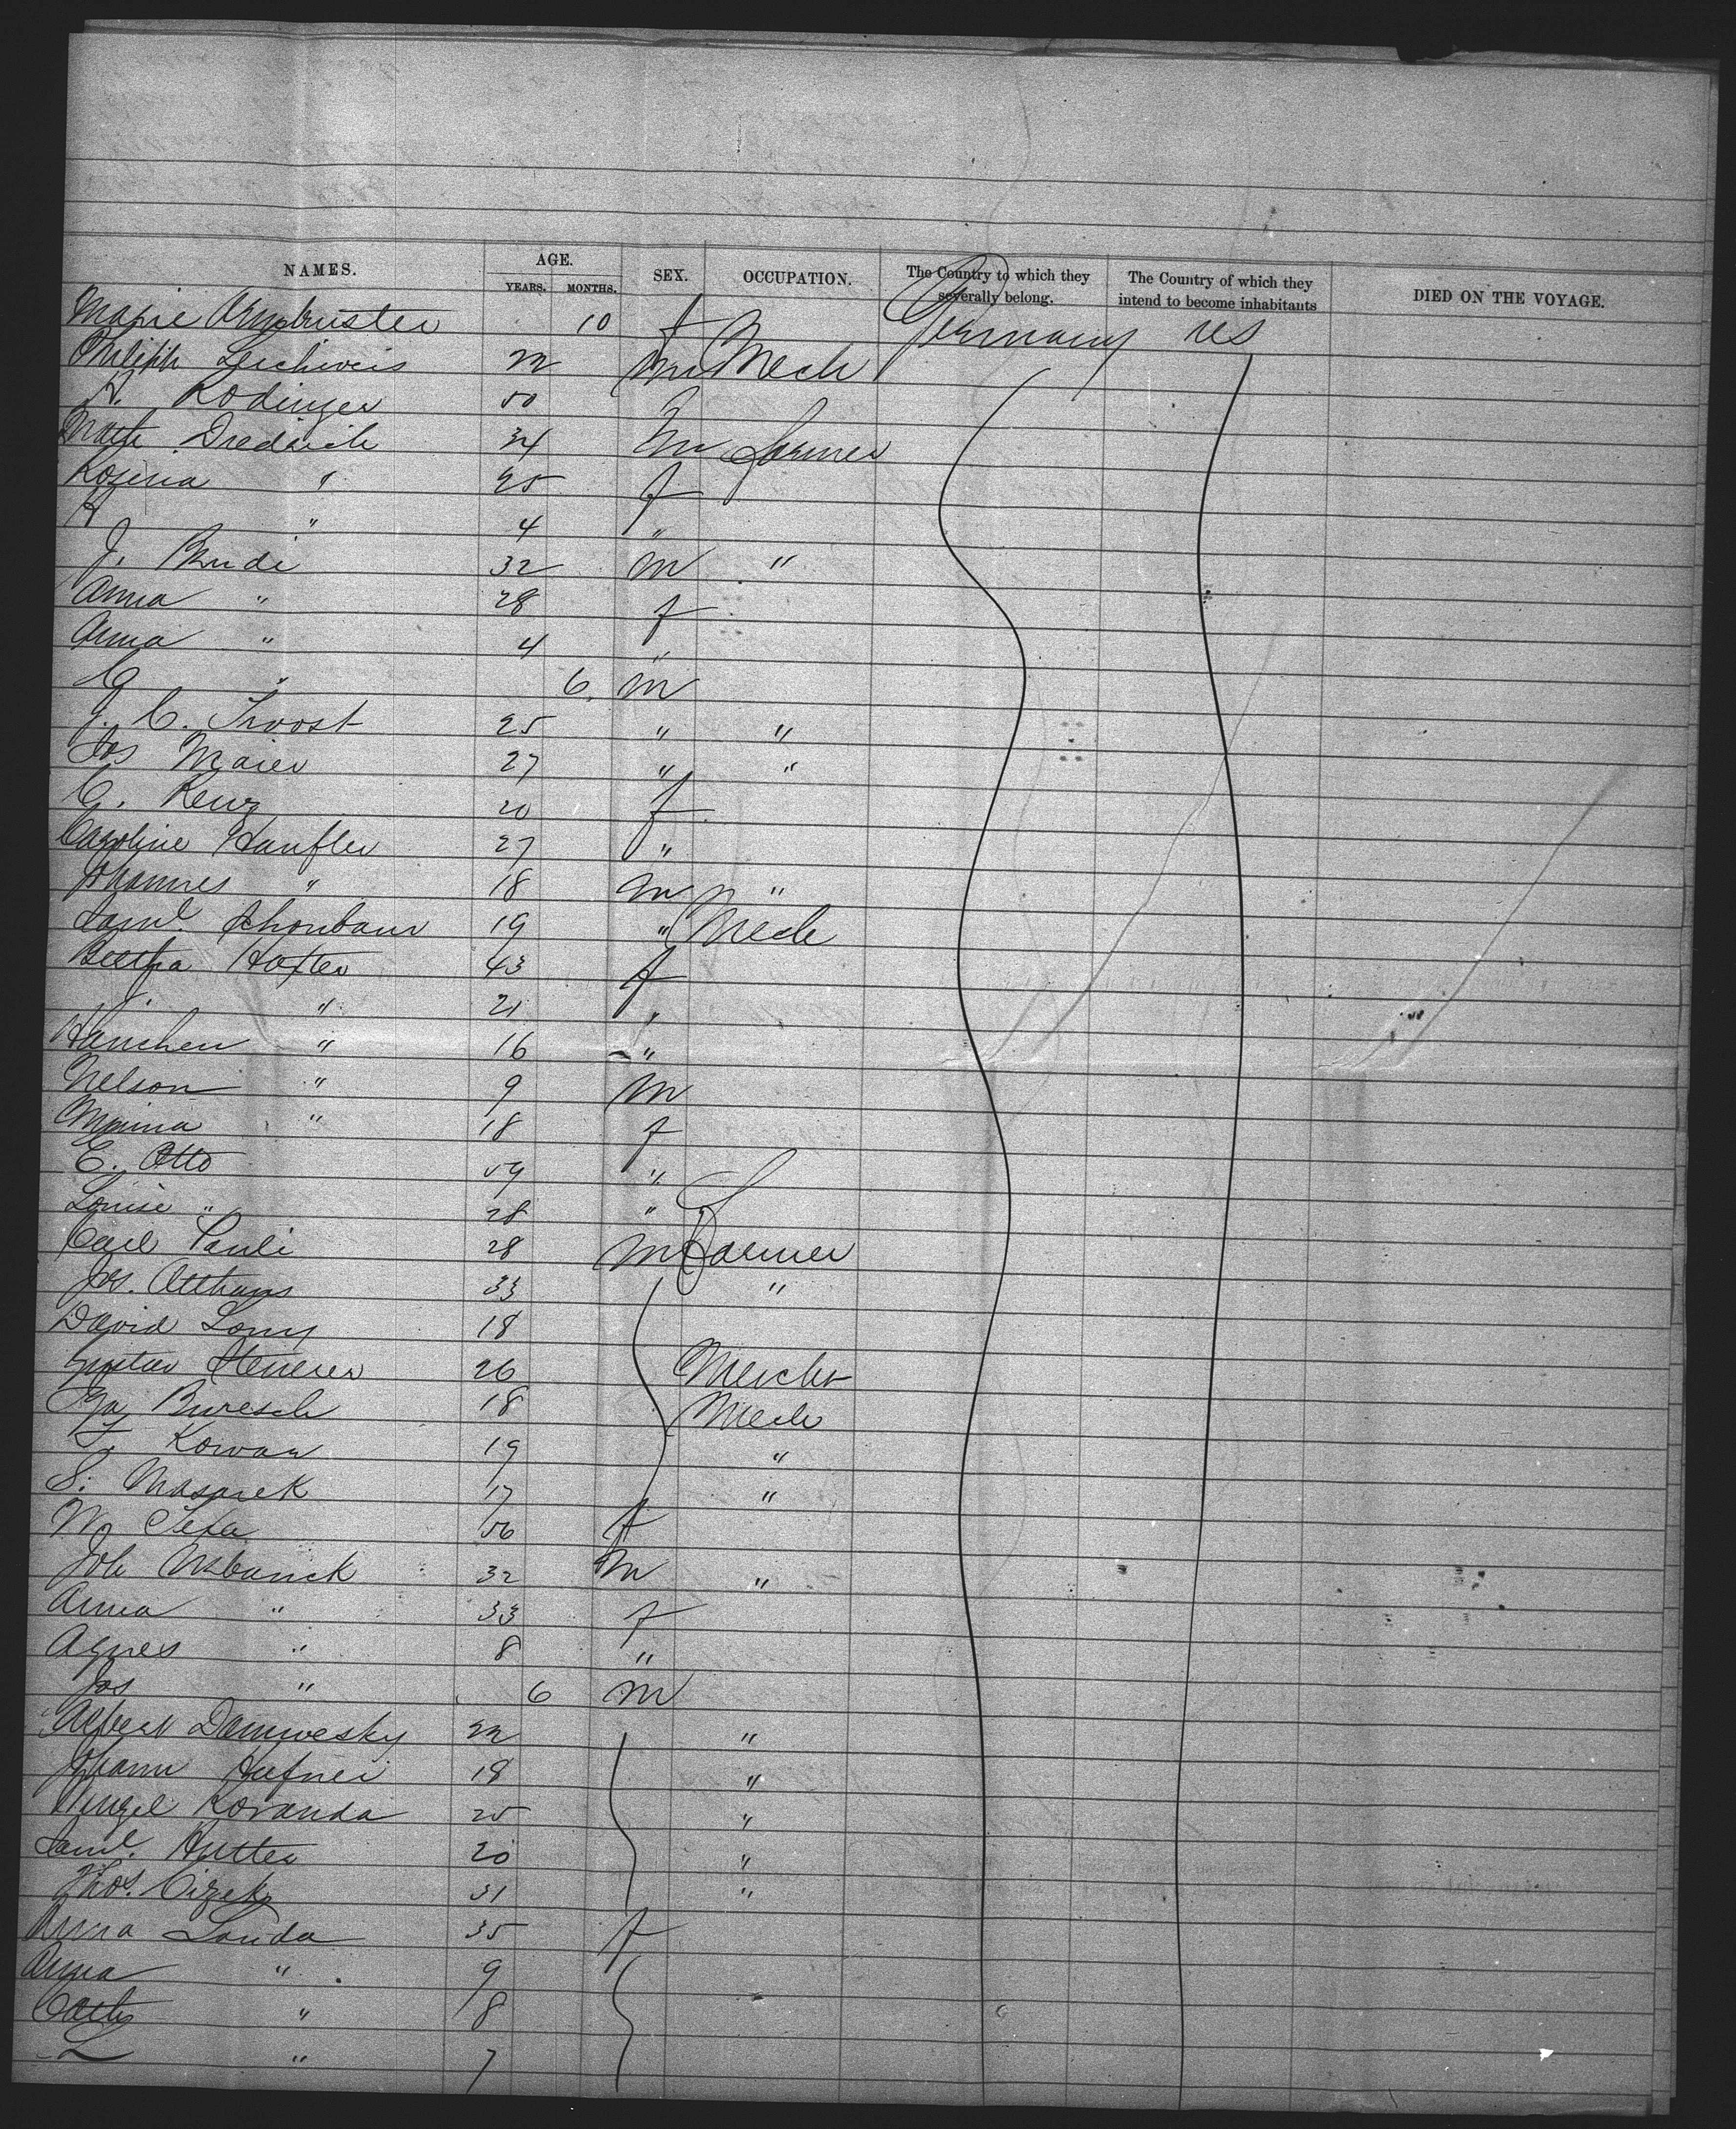 NAMES. AGE. SEX. OCCUPATION. The Country to which they severally belong. The Country of which they intend to become inhabitants DIED ON THE VOYAGE.
YEARS. MONTHS.
Marie Armbruster 10 f Germany US
Philipp Leichweis 22 m Mech
Rodinger 50
Dredrich 34 m Farmer
Rosina " 25 f
" 4 "
J. 32 m "
Anna " 28 f
Anna " 4 "
C " 6 m
J. C. Troost 25 " "
Jos Maier 27 " "
C. Renz 20 f
Caroline Haufler 27 "
Johannes " 18 m "
Saml. Schonbaur 19 " Mech
Bertha Hofter 43 f
" 21 "
Hanchen " 16 "
Nelson " 9 m
Minna " 18 f
E. Otto 59 "
Louise " 28 "
Carl Pauli 28 m Farmer
Jos. Atthans 33 "
David Lony 18
Gustav 26 Mercht
Buresch 18 Mech
Kowar 19 "
S. Masarek 17 "
56 f
Joh Urbanek 32 m "
Anna " 33 f
Agnes " 8 "
Jos " 6 m
Albert Damwesky 22 "
Johann Hufner 18 "
Wenzel Koranda 25 "
Saml. Hutter 20 "
Thos. Cizek 31 "
Anna Louda 35 f
Anna " 9
Cath " 8
" 7